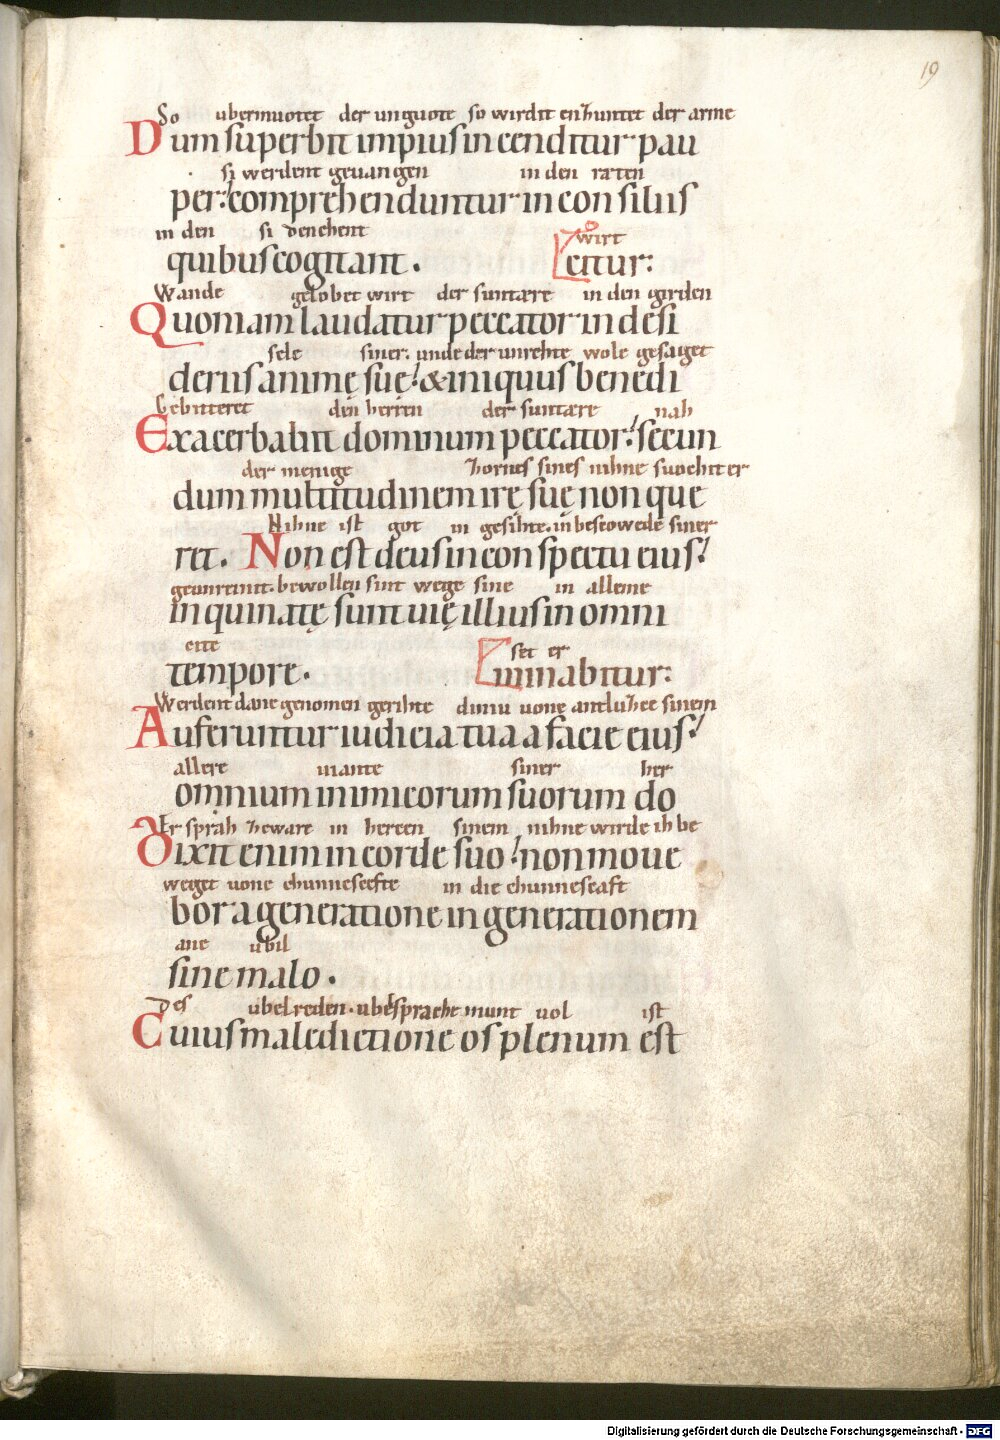 19
So ubermuotet der unguote so wirdit enzhuntet der arme
Dum superbit impius incenditur pau
si werdent geuangen in den raten
per: comprehenduntur in consiliis
in den si denchent
quibus cogitant.
wirt
citur:
Wande gelobet wirt der suntære in den girden
Quoniam laudatur peccator in desi
sele siner. unde der unrehte wole gesaget
deriis animę suę: & iniquus benedi
Gebitteret den herren der suntære nah
Exacerbabit dominum peccator: secun
der menige zornes sines nihne suochit er
dum multitudinem irę suę non que
Nihne ist got in gesihte. in bescowede siner
ret. Non est deus in conspectu eius:
geunreinit. bewollen sint wege sine in alleme
inquinatę sunt uię illius in omni
cite
tempore.
set er
minabitur:
Werdent dane genomen gerihte diniu uone antluzee sinem
Auferuntur iudicia tua a facie eius:
allere uiante siner her
omnium inimicorum suorum do
Er sprah zeware in hercen sinem nihne wirde ih be
Dixit enim in corde suo: non moue
weget uone chunnescefte in die chunnescaft
bor a generatione in generationem
ane ubil
sine malo.
Des ubelreden. ubersprache munt uol ist
Cuius maledictione os plenum est
Digitalisierung gefördert durch die Deutsche Forschungsgemeinschaft - DFG